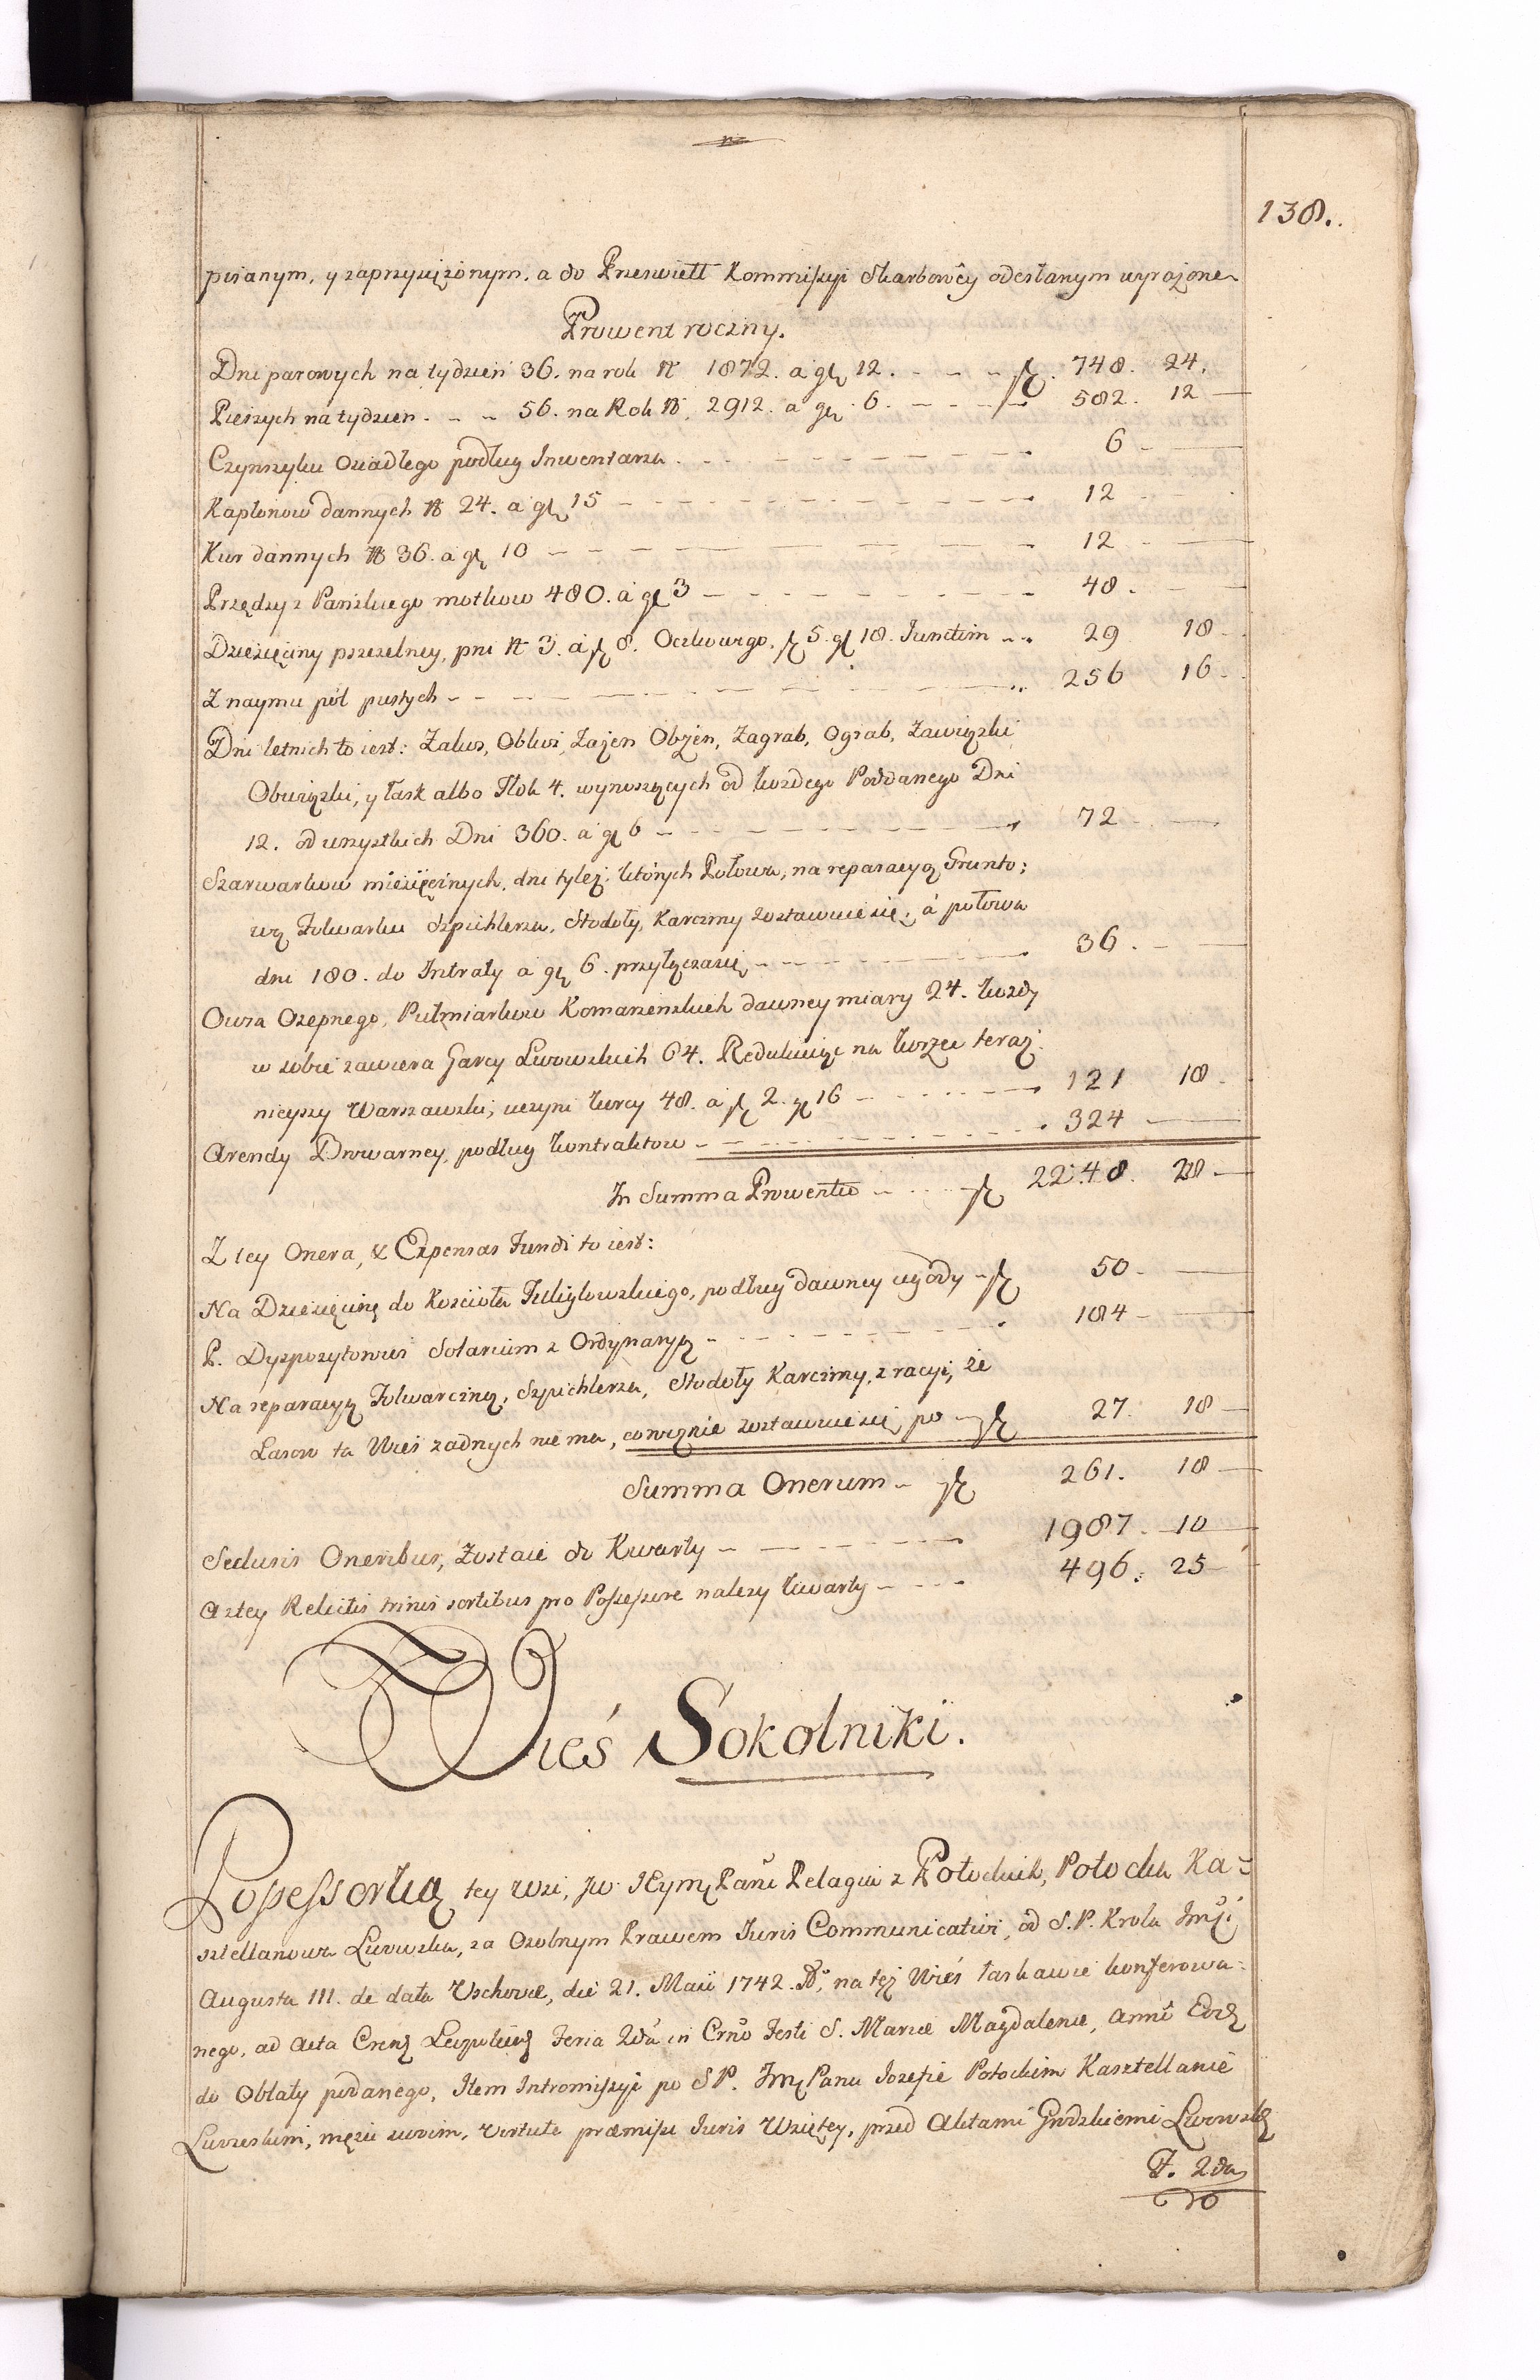 138.
pisanym, y zaprzysiężonym, a do Przeświett Kommissyi Skarbowey odesłanym wyrażone
Prowent roczny.
Dni parowych na tydzień 36. na rok N 1872. a gł 12. - - - fł. 748. 24.
Pieszych na tydzień - - - 56. na Rok N 2912. a gł 6. - - - 582. 12
Czynszyku Osiadłego podług Inwentarza - - - 6
Kapłonow dannych N 24. a gł 15 - - - 12
Kur dannych N 36. a gł 10 - - - 12
Przędzy z Pańskiego motkow 480. a gł 3 - - - 48.
Dziesięciny pszczelney, pni N 3. a fł 8. Oczkowego, fł 5. gł 18. Junctim - - 29 18
Z naymu pół pustych - - - 256 16
Dni letnich to iest: Zakos, Obkos, Zażen Obżen, Zagrab, Ograb, Zawięzki
Obwięzki, y Task albo Tłok 4. wynoszących od każdego Poddanego Dni
12. od wszystkich Dni 360. a gł 6 - - - 72
Szarwarkow miesięcznych, dni tyleż, których Połowa, na reparacyą Grunto:
wą Folwarku Szpichlerza, Stodoły, Karczmy zostawuie się, á połowa
dni 180. do Intraty a gł 6. przyłącza się - - - 36.
Owsa Osepnego, Pułmiarkow Komarzenskich dawney miary 24. każdy
w sobie zawiera Garcy Lwowskich 64. Redukuiąc na korzec teraź:
nieyszy Warszawski, uczyni korcy 48. a fł 2. gł 16 - - - 121 18
Arendy Dworarney, podług kontraktow - - - 324
In Summa Prowentu - - - fł 2248. 28
Z tey Onera, & Expensas Fundi to iest:
Na Dziesięcinę do Kościoła Tuligłowskiego, podług dawney ugody - fł 50
P. Dyspozytorowi Solarium z Ordynaryą - - - 184
Na reparacyą Folwarczną, Szpichlerza, Stodoły Karczmy, z racyi, że
Lasow ta Wieś zadnych nie ma, corocznie zostawuie się po - fł 27. 18
Summa Onerum - fł 261. 18
Seclusis Oneribus, Zostaie do Kwarty - - - 1987. 10
A z tey Relictis trinis sortibus pro Possessore nalezy kwarty - - - 496. 25
Wieś Sokolniki.
Possessorką tey Wsi, JW JEymę Pani Pelagia z Potockich, Potocka Ka-
sztellanowa Lwowska, za Osobnym Prawem Juris Communicativi, od S. P. Krola Jmci
Augusta III. de data Vschovæ, die 21. Maii 1742. na tęż Wieś łaskawie konferowa:
nego, ad Acta Feria 2da in Crno Festi S. Mariæ Magdalenæ, Anni
do Oblaty podanego, Item Intromissyi po SP. Jmę Panu Jozefie Potockim Kasztellanie
Lwowskim, mężu swoim, virtute præmissi Juris Wziętey, przed Aktami Grodzkiemi Lwowskę
F. 2da